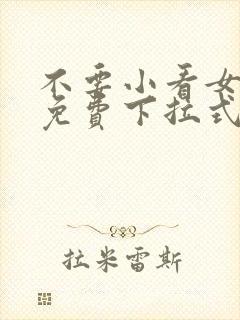 不要小看女
免費下拉式
拉米雷斯